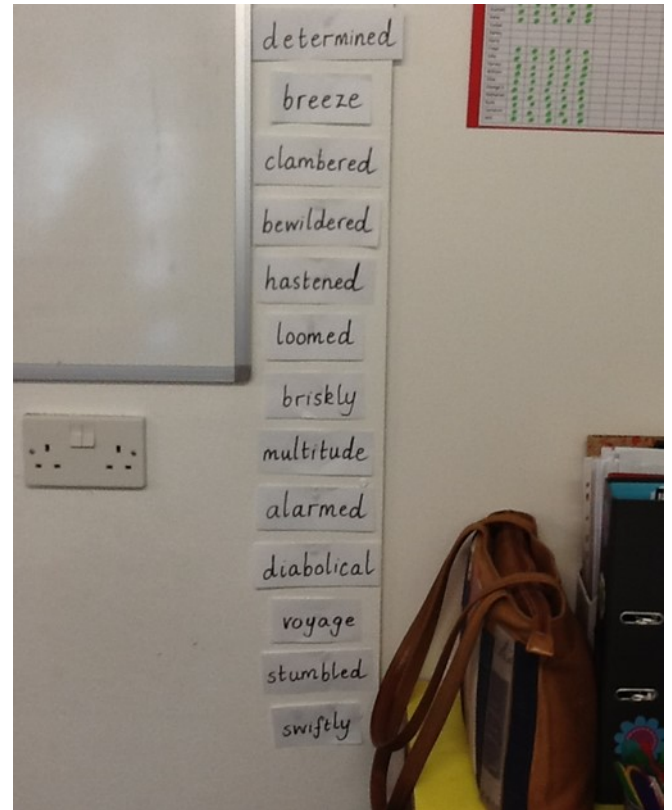 determined
breeze
clambered
bewildered
hastened
loomed
briskly
multitude
alarmed
diabolical
voyage
stumbled
swiftly